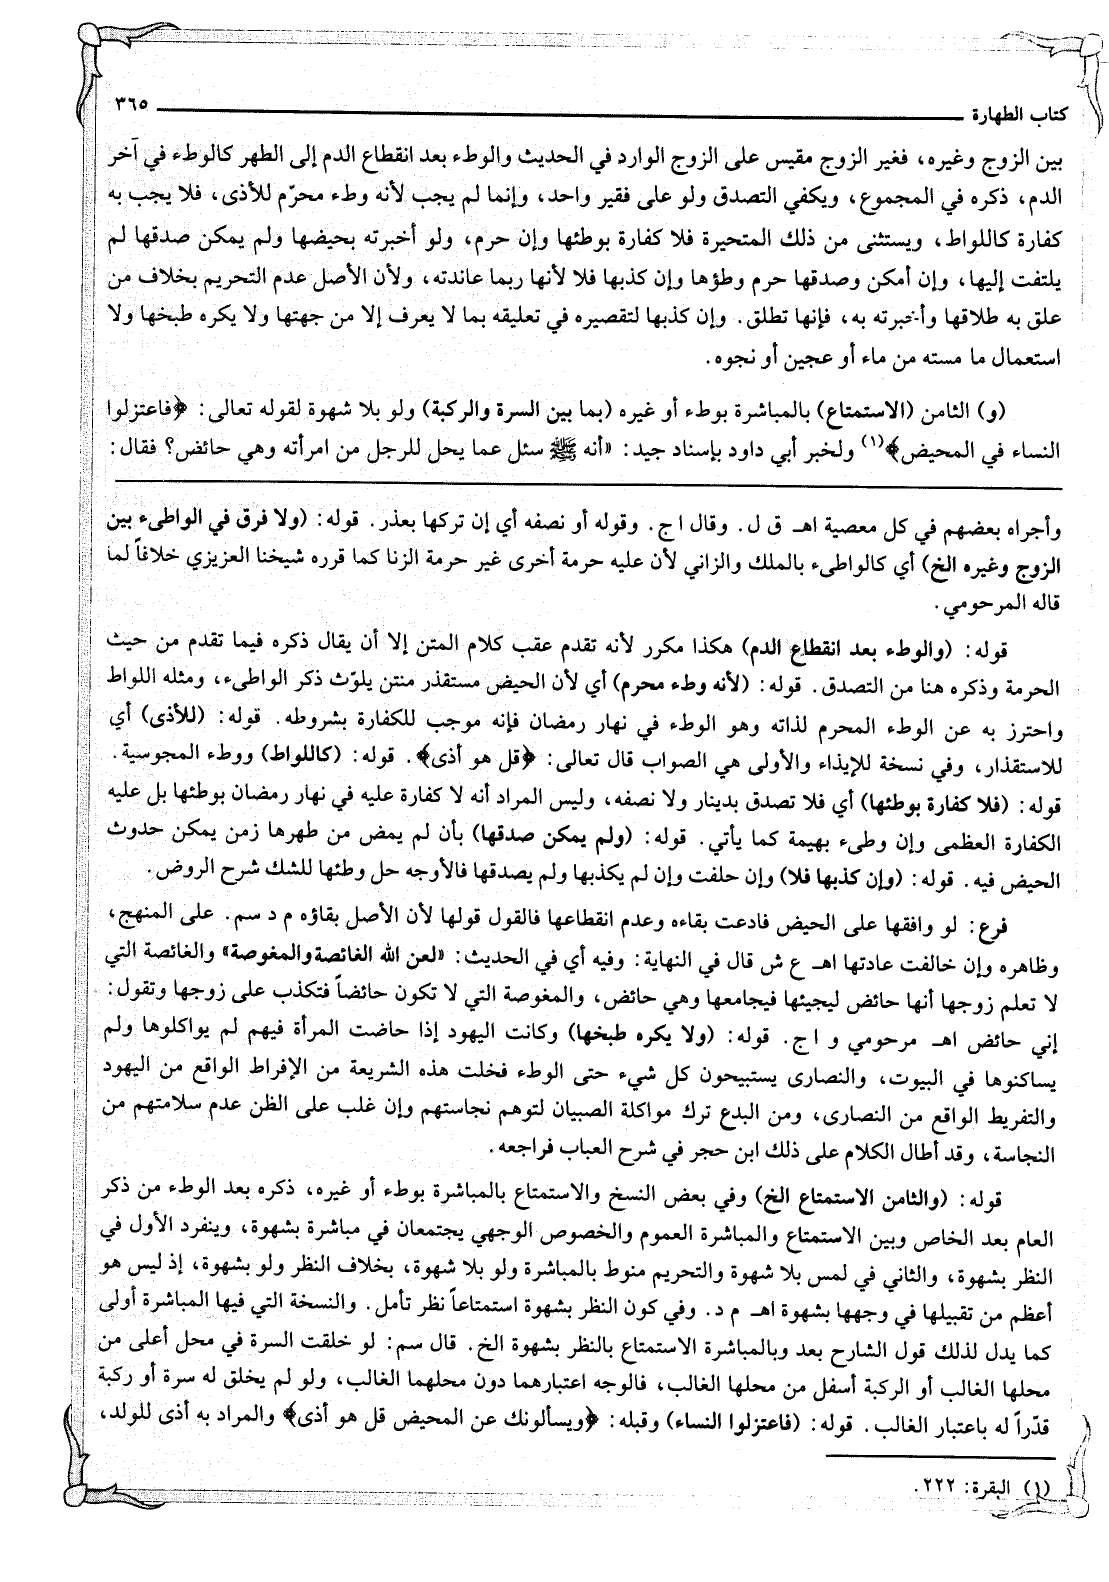 كتاب الطهارة ٣٦٥
بين الزوج وغيره، فغير الزوج مقيس على الزوج الوارد في الحديث والوطء بعد انقطاع الدم إلى الطهر كالوطء في آخر
الدم، ذكره في المجموع، ويكفي التصدق ولو على فقير واحد، وإنما لم يجب لأنه وطء محرّم للأذى، فلا يجب به
كفارة كاللواط، ويستثنى من ذلك المتحيرة فلا كفارة بوطئها وإن حرم، ولو أخبرته بحيضها ولم يمكن صدقها لم
يلتفت إليها، وإن أمكن وصدقها حرم وطؤها وإن كذبها فلا لأنها ربما عاندته، ولأن الأصل عدم التحريم بخلاف من
علق به طلاقها وأخبرته به، فإنها تطلق. وإن كذبها لتقصيره في تعليقه بما لا يعرف إلا من جهتها ولا يكره طبخها ولا
استعمال ما مسته من ماء أو عجين أو نجوه.
(و) الثامن (الاستمتاع) بالمباشرة بوطء أو غيره (بما بين السرة والركبة) ولو بلا شهوة لقوله تعالى: ﴿فاعتزلوا
النساء في المحيض﴾(١) ولخبر أبي داود بإسناد جيد: «أنه ﷺ سئل عما يحل للرجل من امرأته وهي حائض؟ فقال:
وأجراه بعضهم في كل معصية اهـ ق ل. وقال ا ج. وقوله أو نصفه أي إن تركها بعذر. قوله: (ولا فرق في الواطىء بين
الزوج وغيره الخ) أي كالواطىء بالملك والزاني لأن عليه حرمة أخرى غير حرمة الزنا كما قرره شيخنا العزيزي خلافاً لما
قاله المرحومي.
قوله: (والوطء بعد انقطاع الدم) هكذا مكرر لأنه تقدم عقب كلام المتن إلا أن يقال ذكره فيما تقدم من حيث
الحرمة وذكره هنا من التصدق. قوله: (لأنه وطء محرم) أي لأن الحيض مستقذر منتن يلوّث ذكر الواطىء، ومثله اللواط
واحترز به عن الوطء المحرم لذاته وهو الوطء في نهار رمضان فإنه موجب للكفارة بشروطه. قوله: (للأذى) أي
للاستقذار، وفي نسخة للإيذاء والأولى هي الصواب قال تعالى: ﴿قل هو أذى﴾. قوله: (كاللواط) ووطء المجوسية.
قوله: (فلا كفارة بوطئها) أي فلا تصدق بدينار ولا نصفه، وليس المراد أنه لا كفارة عليه في نهار رمضان بوطئها بل عليه
الكفارة العظمى وإن وطىء بهيمة كما يأتي. قوله: (ولم يمكن صدقها) بأن لم يمض من طهرها زمن يمكن حدوث
الحيض فيه. قوله: (وإن كذبها فلا) وإن حلفت وإن لم يكذبها ولم يصدقها فالأوجه حل وطئها للشك شرح الروض.
فرع: لو وافقها على الحيض فادعت بقاءه وعدم انقطاعها فالقول قولها لأن الأصل بقاؤه م د سم. على المنهج،
وظاهره وإن خالفت عادتها اهـ ع ش قال في النهاية: وفيه أي في الحديث: «لعن الله الغائصة والمغوصة» والغائصة التي
لا تعلم زوجها أنها حائض ليجيئها فيجامعها وهي حائض، والمغوصة التي لا تكون حائضاً فتكذب على زوجها وتقول:
إني حائض اهـ مرحومي و ا ج. قوله: (ولا يكره طبخها) وكانت اليهود إذا حاضت المرأة فيهم لم يواكلوها ولم
يساكنوها في البيوت، والنصارى يستبيحون كل شيء حتى الوطء فخلت هذه الشريعة من الإفراط الواقع من اليهود
والتفريط الواقع من النصارى، ومن البدع ترك مواكلة الصبيان لتوهم نجاستهم وإن غلب على الظن عدم سلامتهم من
النجاسة، وقد أطال الكلام على ذلك ابن حجر في شرح العباب فراجعه.
قوله: (والثامن الاستمتاع الخ) وفي بعض النسخ والاستمتاع بالمباشرة بوطء أو غيره، ذكره بعد الوطء من ذكر
العام بعد الخاص وبين الاستمتاع والمباشرة العموم والخصوص الوجهي يجتمعان في مباشرة بشهوة، وينفرد الأول في
النظر بشهوة، والثاني في لمس بلا شهوة والتحريم منوط بالمباشرة ولو بلا شهوة، بخلاف النظر ولو بشهوة، إذ ليس هو
أعظم من تقبيلها في وجهها بشهوة اهـ م د. وفي كون النظر بشهوة استمتاعاً نظر تأمل. والنسخة التي فيها المباشرة أولى
كما يدل لذلك قول الشارح بعد وبالمباشرة الاستمتاع بالنظر بشهوة الخ. قال سم: لو خلقت السرة في محل أعلى من
محلها الغالب أو الركبة أسفل من محلها الغالب، فالوجه اعتبارهما دون محلهما الغالب، ولو لم يخلق له سرة أو ركبة
قدّراً له باعتبار الغالب. قوله: (فاعتزلوا النساء) وقبله: ﴿ويسألونك عن المحيض قل هو أذى﴾ والمراد به أذى للولد،
(١) البقرة: ٢٢٢.